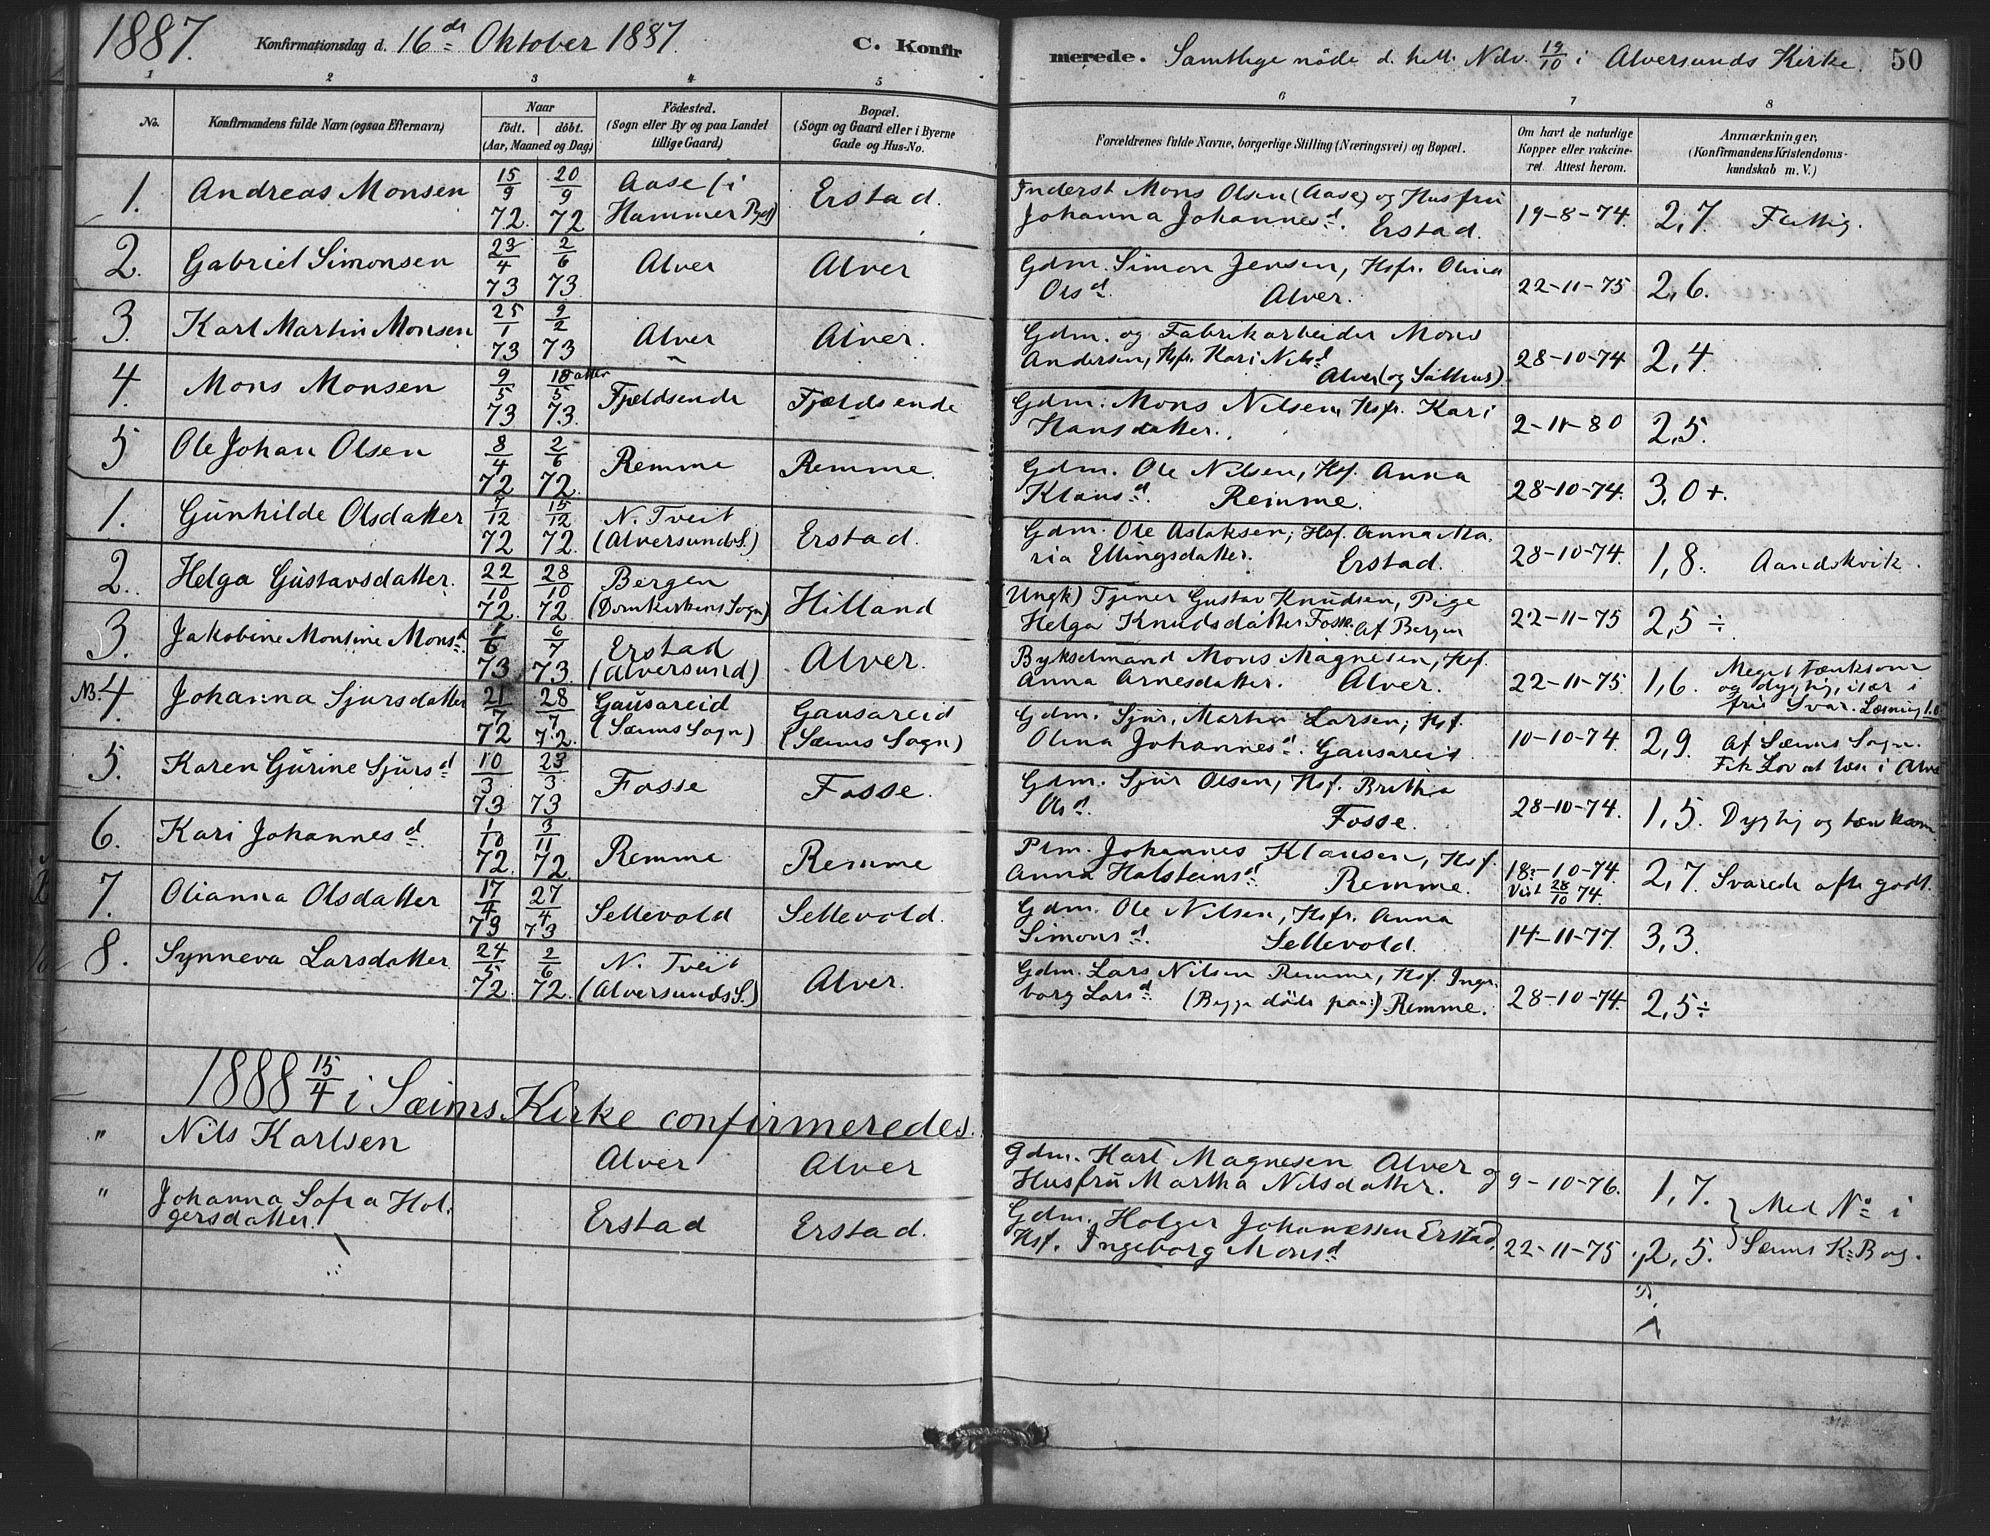 1887. Konfirmationsdag d. 16de Oktober 1887. C. Konfirmerede. Samtlige nöde d. hell. Ndv. 19/10 i Alversunds Kirke. 50
1 2 3 4 5 6 7 8
No. Konfirmandens fulde Navn (ogsaa Efternavn) Naar födt. döbt. (Aar, Maaned og Dag) Födested. (Sogn eller By og paa Landet tillige Gaard) Bopæl. (Sogn og Gaard eller i Byerne Gade og Hus-No. Forældrenes fulde Navne, borgerlige Stilling (Næringsvei) og Bopæl. Om havt de naturlige Kopper eller vakcineret. Attest herom. Anmærkninger. (Konfirmandens Kristendomskundskab m. V.)
1. Andreas Monsen 15/9 72. 20/9 72 Aase (i Hammer Pgd) Erstad. Inderst Mons Olsen (Aase) og Husfru Johanna Johannesd. Erstad. 19-8-74. 2,7 Fattig.
2. Gabriel Simonsen 23/4 73 2/6 73. Alver Alver Gdm. Simon Jensen, Hsfr. Olina Olsd. Alver. 22-11-75 2,6.
3. Karl Martin Monsen 25/1 73 9/2 73 Alver Alver. Gdm. og Fabrikarbeider Mons Andersen, Hsfr. Kari Nilsd Alver (og ) 28-10-74 2,4.
4. Mons Monsen 9/5 73 18/5 73. Fjeldsende Fjeldsende Gdm. Mons Nilsen, Hsfr. Kari Hansdatter. 2-11-80 2,5.
5 Ole Johan Olsen 8/4 72 2/6 72. Remme Remme. Gdm. Ole Nilsen, Hsf. Anna Klausd. Remme. 28-10-74. 3,0+.
1. Gunhilde Olsdatter 7/12 72 15/12 72. N. Tveit (Alversunds S.) Erstad. Gdm. Ole Aslaksen, Hsf. Anna Maria Ellingsdatter. Erstad. 28-10-74. 1,8. Aandskvik.
2. Helga Gustavsdatter. 22/10 72. 28/10 72 Bergen (Domkirkens Sogn) Hilland (Ungk) Tjener Gustav Knudsen, Pige Helga Knudsdatter Fosse. Af Bergen 22-11-75 2,5÷
3. Jakobine Monsine Monsd. 1/6 73 6/7 73. Erstad (Alversund) Alver. Bykselmand Mons Magnesen, Hsf. Anna Arnesdatter. Alver. 22-11-75 1,6. Meget tænksom og dygtig, især i frit Svar. Læsning 1.0
NB. 4. Johanna Sjursdatter 21/7 72 28/7 72. Gausareid (Sæims Sogn) Gausareid (Sæims Sogn) Gdm. Sjur Martin Larsen, Hsf. Olina Johannesd. Gausareid 10-10-74. 2,9. Af Sæims Sogn. Fik Lov at læse i Alve
5. Karen Gurine Sjursd 10/3 73 23/3 73 Fosse Fosse. Gdm. Sjur Olsen, Hsf. Britha Olsd Fosse. 28-10-74. 1,5. Dygtig og tænksom
6. Kari Johannesd. 1/10 72. 3/11 72. Remme Remme Plm. Johannes Klausen, Hsf. Anna Halsteinsd. Remme. 18-10-74. Vist 28/10 74. 2,7. Svarede ofte godt.
7. Olianna Olsdatter 17/4 73 27/4 73 Sellevold Sellevold. Gdm. Ole Nilsen, Hsfr. Anna Simonsd. Sellevold. 14-11-77. 3,3.
8. Synneva Larsdatter 24/5 72. 2/6 72. N. Tveit (Alversunds S.) Alver. Gdm. Lars Nilsen Remme, Hsf. Ingeborg Larsd. (Begge döde paa:) Remme. 28-10-74. 2,5÷
1888 15/4 i Sæims Kirke confirmeredes.
" Nils Karlsen Alver Alver Gdm. Karl Magnesen Alver og Husfru Martha Nilsdatter. 9-10-76. 1,7. } Med No i
" Johanna Sofia Holgersdatter. Erstad Erstad. Gdm. Holger Johannessen Erstad, Hsf. Ingeborg Monsd 22-11-75 2,5. Sæims K. Bog.